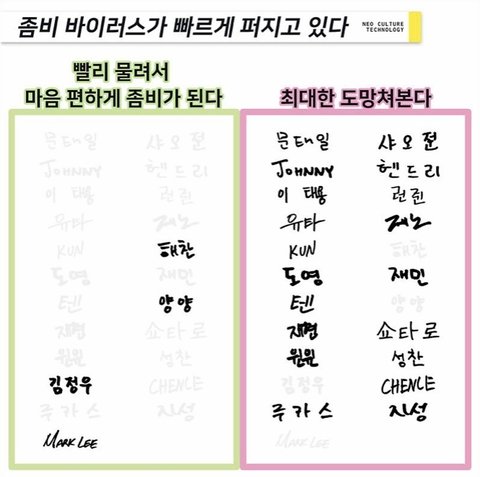 좀비 바이러스가 빠르게 퍼지고 있다
NEO CULTURE
TECHNOLOGY
빨리 물려서
마음 편하게 좀비가 된다
문태일 샤오쥔
JOHNNY 헨드리
이 태용 런쥔
유타 제노
KUN 해찬
도영 재민
텐 양양
재현 쇼타로
윈윈 성찬
김정우 CHENLE
루카스 지성
MARK LEE
최대한 도망쳐본다
문태일 샤오쥔
JOHNNY 헨드리
이 태용 런쥔
유타 제노
KUN 해찬
도영 재민
텐 양양
재현 쇼타로
윈윈 성찬
김정우 CHENLE
루카스 지성
MARK LEE